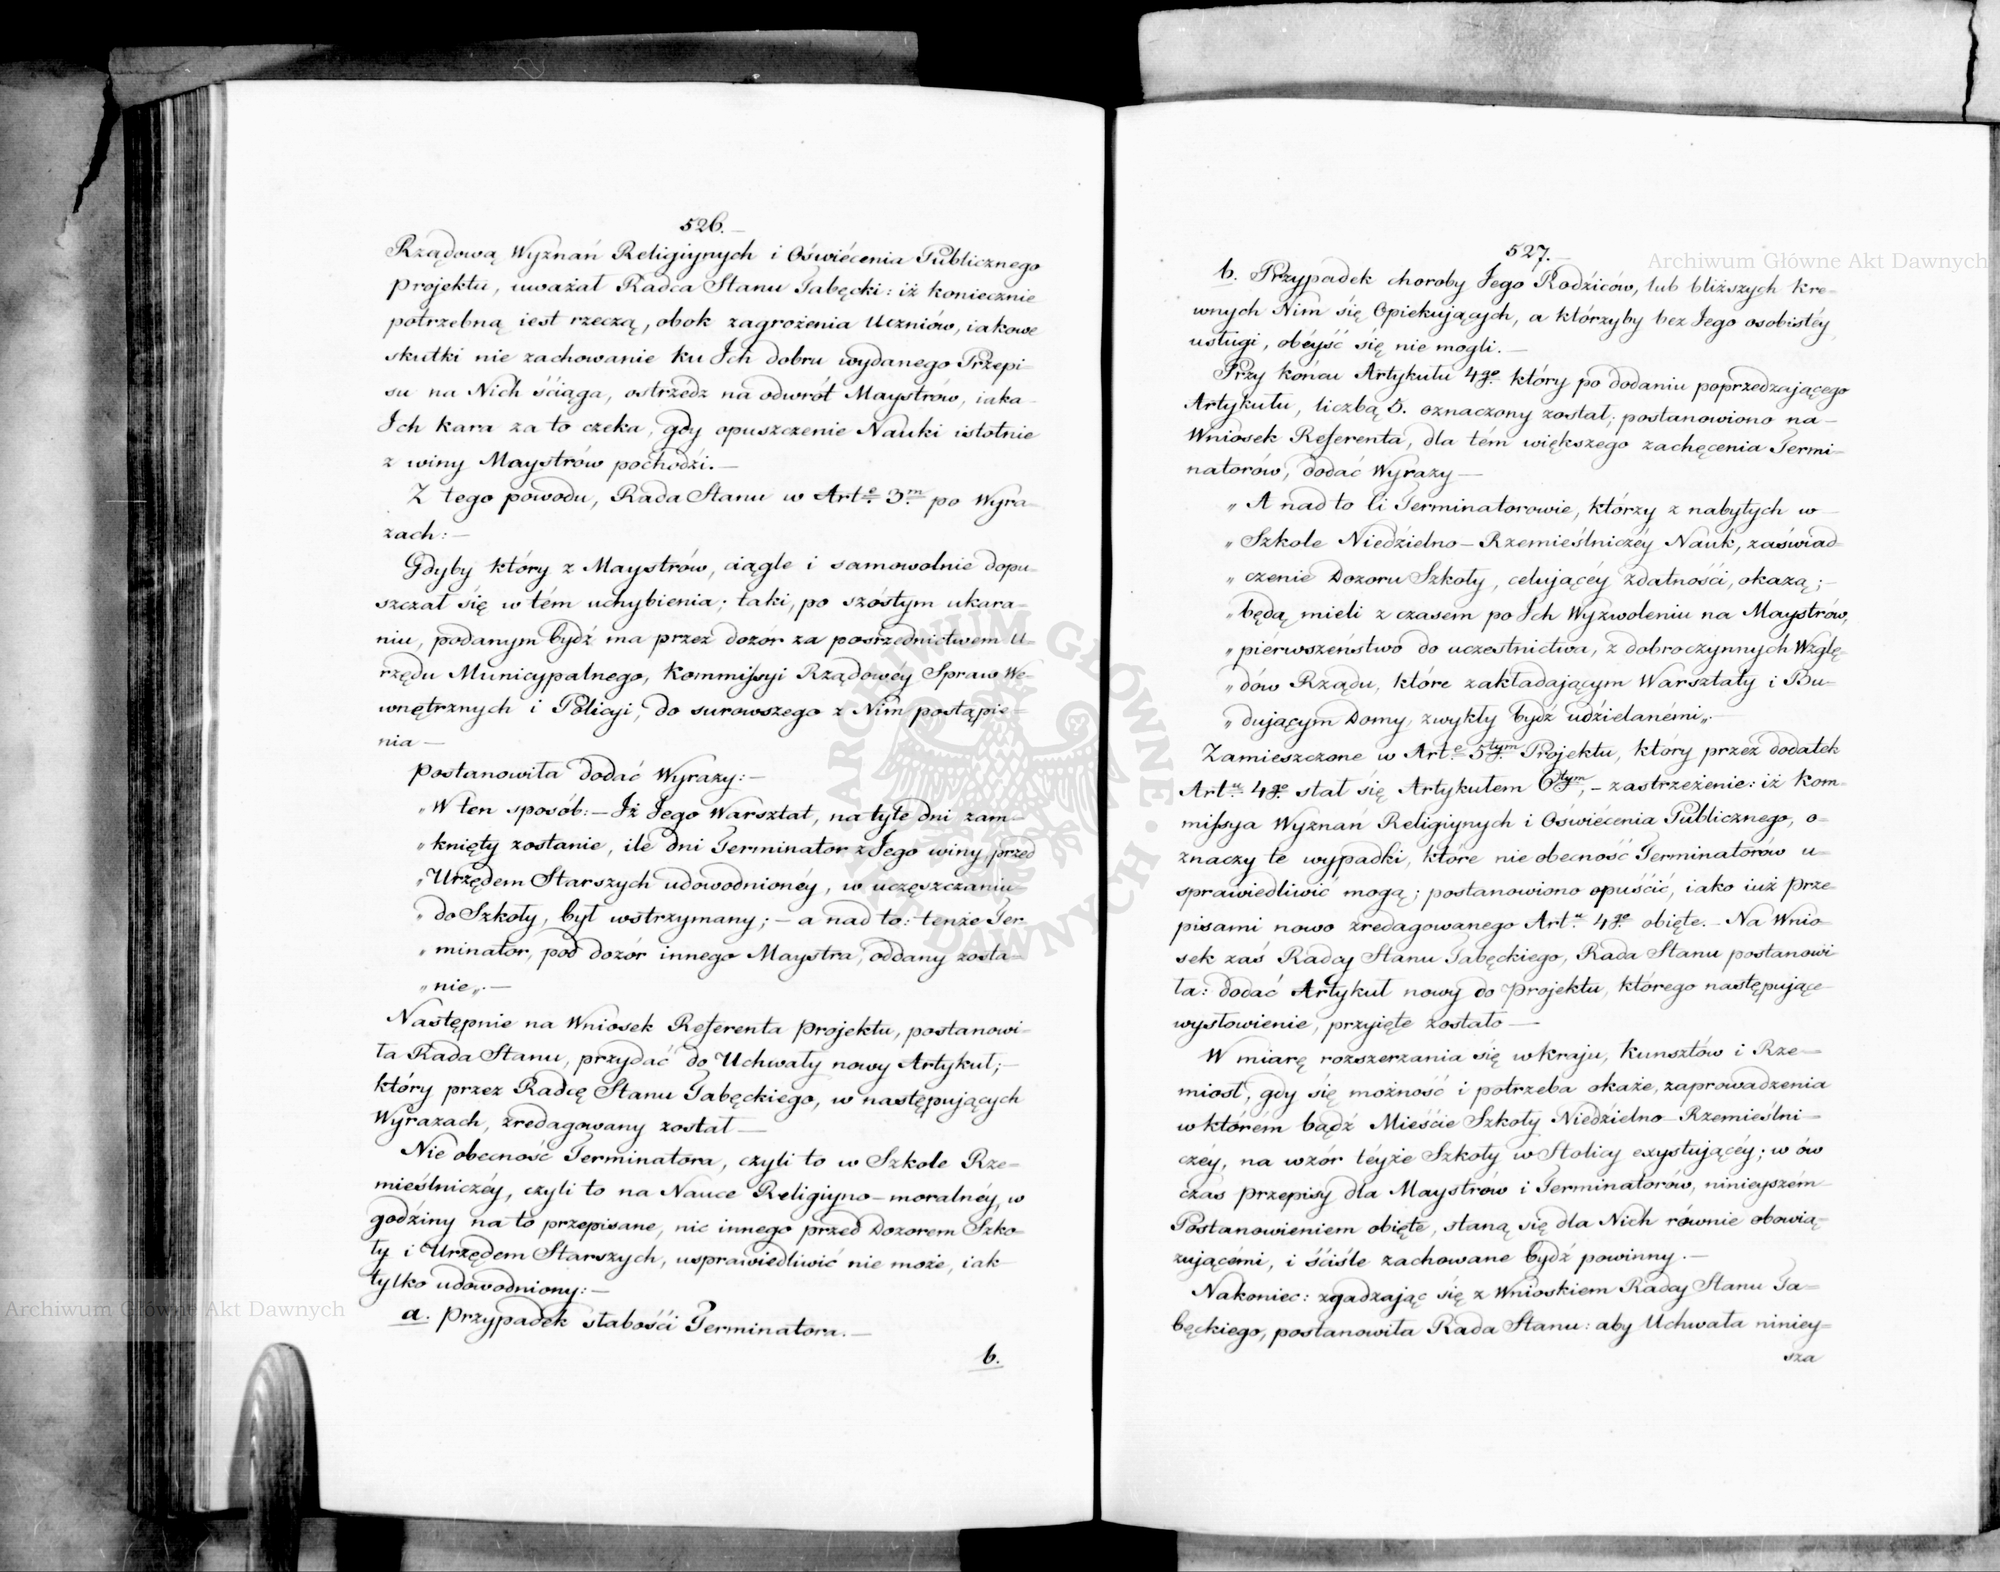 526.
Rządową Wyznań Religiynych i Oświécenia Publicznego
projektu, uważał Radca Stanu Tabęcki: iż koniecznie
potrzebną iest rzeczą, obok zagrożenia Uczniów, iakowe
skutki nie zachowanie ku Ich dobru wydanego Przepi=
su na Nich ściąga, ostrzedz na odwrót Maystrów, iaka
Ich kara za to czeka, gdy opuszczenie Nauki istotnie
z winy Maystrów pochodzi.—
Z tego powodu, Rada Stanu w Art.e 3.m po Wyra=
zach:—
Gdyby który z Maystrów, ciągle i samowolnie dopu=
szczał się w tém uchybienia; taki, po szóstym ukara=
niu, podanym bydź ma przez dozór za posrzednictwem U=
rzędu Municypalnego, Kommissyi Rządowéy Spraw We=
wnętrznych i Policyi, do surowszego z Nim postąpie=
nia—
postanowiła dodać Wyrazy:—
„W ten sposób:— Iż Jego Warsztat, na tyle dni zam=
„knięty zostanie, ile dni Terminator z Jego winy, przed
„Urzędem Starszych udowodnionéy, w uczęszczaniu
„do Szkoły, był wstrzymany;— a nad to: tenże Ter=
„minator, pod dozór innego Maystra, oddany zosta=
„nie„.—
Następnie na Wniosek Referenta projektu, postanowi=
ła Rada Stanu, przydać do Uchwały nowy Artykuł;—
który przez Radcę Stanu Tabęckiego, w następujących
Wyrazach, zredagowany został—
Nie obecność Terminatora, czyli to w Szkole Rze=
mieślniczéy, czyli to na Nauce Religiyno-moralnéy, w
godziny na to przepisane, nic innego przed Dozorem Szko=
ły i Urzędem Starszych, usprawiedliwić nie może, iak
tylko udowodniony:—
a. przypadek słabości Terminatora.—
b.
527.
b. Przypadek choroby Jego Rodziców, lub bliższych kre=
wnych Nim się Opiekujących, a którzyby bez Jego osobistéy
usługi, obéyść się nie mogli.—
Przy końcu Artykułu 4go który po dodaniu poprzedzającego
Artykułu, liczbą 5. oznaczony został; postanowiono na
Wniosek Referenta, dla tém większego zachęcenia Termi=
natorów, dodać Wyrazy—
„A nad to ci Terminatorowie, którzy z nabytych w
„Szkole Niedzielno-Rzemieślniczéy Nauk, zaświad=
„czenie Dozoru Szkoły, celującéy zdatności, okażą;—
„będą mieli z czasem po Ich Wyzwoleniu na Maystrów,
„piérwszeństwo do uczestnictwa, z dobroczynnych Wzglę=
„dów Rządu, które zakładającym Warsztaty i Bu=
„dującym Domy, zwykły bydź udzielanémi„.—
Zamieszczone w Art.e 5tym Projektu, który przez dodatek
Art.u 4go stał się Artykułem 6tym,— zastrzeżenie: iż Kom=
missya Wyznań Religiynych i Oświecenia Publicznego, o=
znaczy te wypadki, które nie obecność Terminatorów u=
sprawiedliwić mogą; postanowiono opuścić, iako iuż prze=
pisami nowo zredagowanego Art.u 4go obięte.— Na Wnio=
sek zaś Radcy Stanu Tabęckiego, Rada Stanu postanowi=
ła: dodać Artykuł nowy do projektu, którego następujące
wysłowienie, przyięte zostało—
W miarę rozszerzania się w kraju, Kunsztów i Rze=
miosł, gdy się możność i potrzeba okaże, zaprowadzenia
w którém bądź Mieście Szkoły Niedzielno-Rzemieślni=
czéy, na wzór teyże Szkoły w Stolicy exystującéy; w ów
czas przepisy dla Maystrów i Terminatorów, ninieyszém
Postanowieniem obięte, staną się dla Nich równie obowią=
zującémi, i ściśle zachowane bydź powinny.—
Nakoniec: zgadzając się z Wnioskiem Radcy Stanu Ta=
bęckiego, postanowiła Rada Stanu: aby Uchwała niniey=
sza
Archiwum Główne Akt Dawnych
Archiwum Główne Akt Dawnych
ARCHIWUM GŁÓWNE AKT DAWNYCH